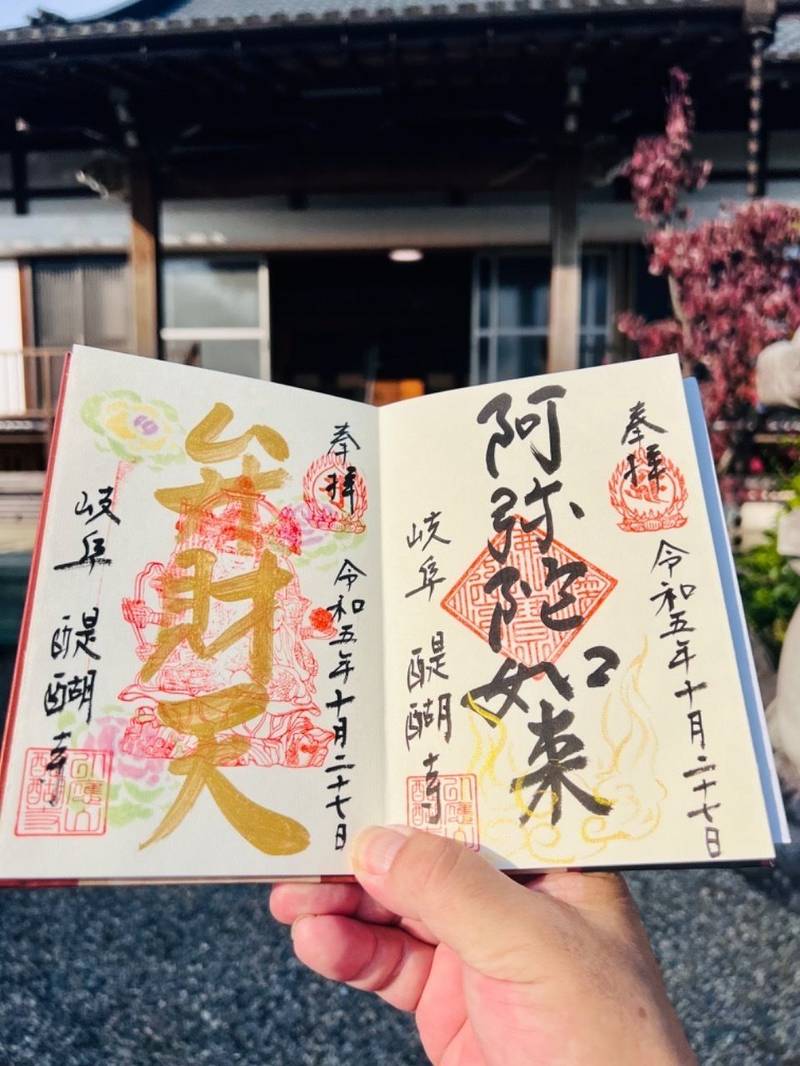 奉拝
阿弥陀如来
令和五年十月二十七日
岐阜 醍醐寺
奉拝
弁財天
令和五年十月二十七日
岐阜 醍醐寺